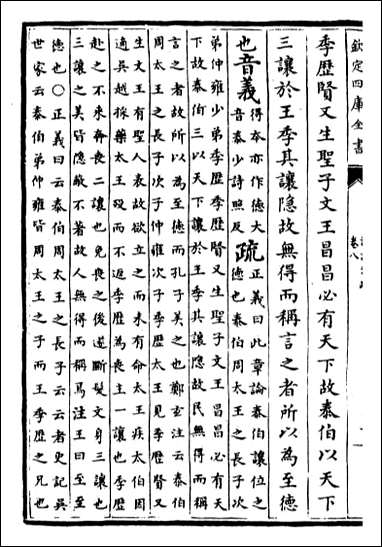 欽定四庫全書
卷八
季歷賢又生聖子文王昌昌必有天下故泰伯以天下
三讓於王季其讓隱故無得而稱言之者所以為至德
也音義得本亦作德大音泰少詩照反疏正義曰此章論泰伯讓位之德也泰伯周太王之長子次
弟仲雍少弟季歷季歷賢又生聖子文王昌昌必有天
下故泰伯三以天下讓於王季其讓隱故民無得而稱
言之者故所以為至德而孔子美之也鄭玄注云泰伯
周太王之長子次子仲雍次子季歷太王見季歷賢又
生文王有聖人表故欲立之而未有命太王疾太伯因
適吳越採藥太王歿而不返季歷為喪主一讓也季歷
赴之不來奔喪二讓也免喪之後遂斷髮文身三讓也
三讓之美皆隱蔽不著故人無得而稱焉注王曰至至
德也○正義曰云泰伯周太王之長子云云者史記吳
世家云泰伯弟仲雍皆周太王之子而王季歷之兄也